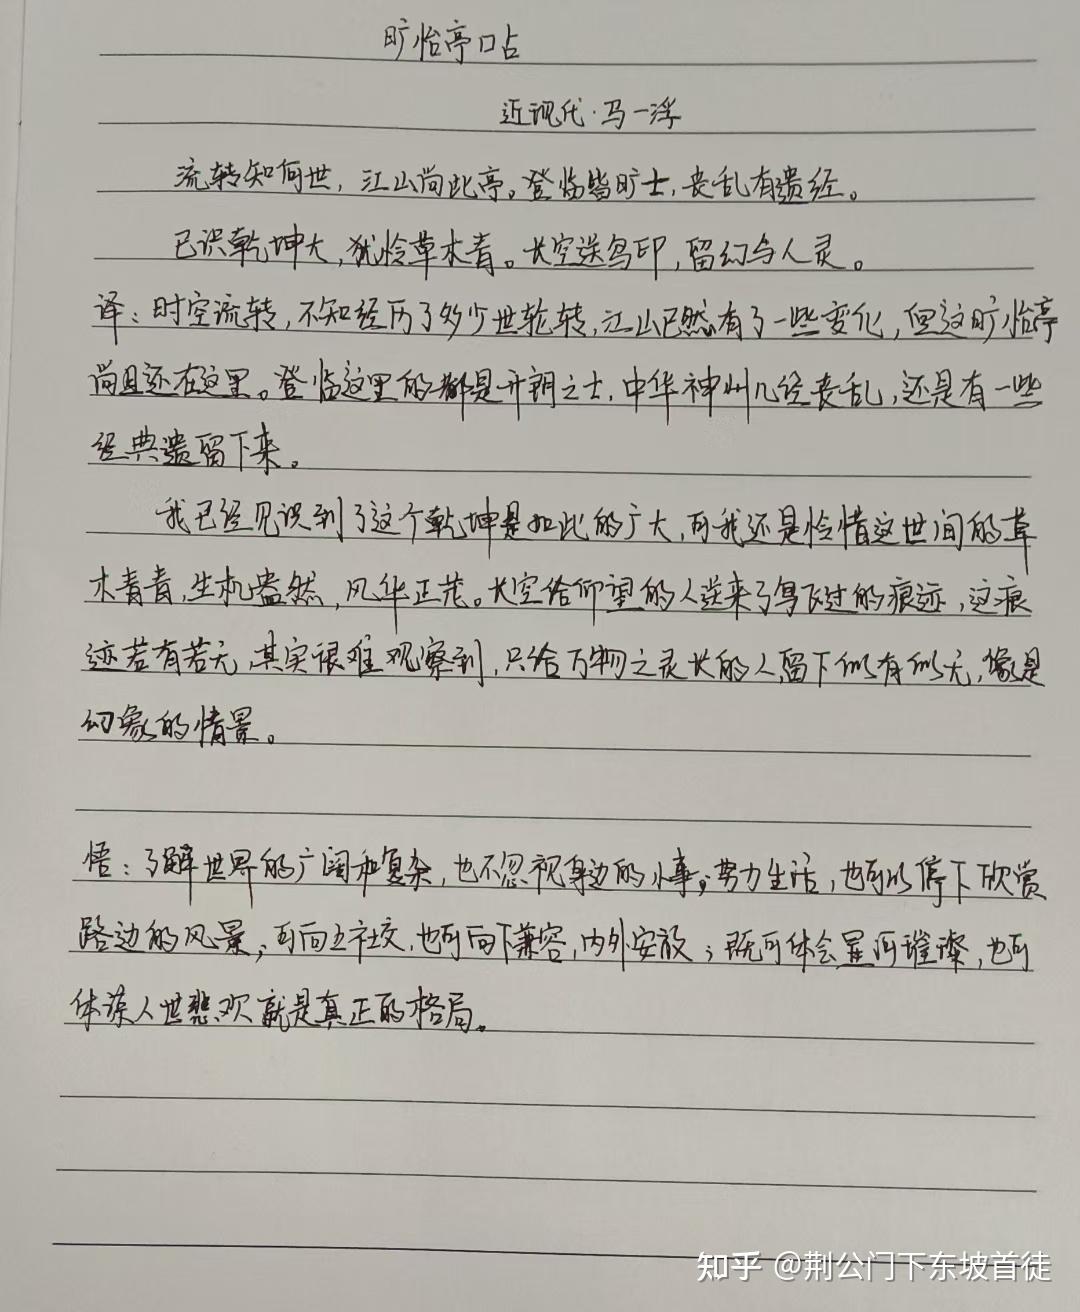 旷怡亭口占
近现代·马一浮
流转知何世，江山尚此亭。登临皆旷士，丧乱有遗经。
已识乾坤大，犹怜草木青。长空送鸟印，留幻与人灵。
译：时空流转，不知经历了多少世轮转，江山已然有了一些变化，但这旷怡亭
尚且还在这里。登临这里的都是开朗之士，中华神州几经丧乱，还是有一些
经典遗留下来。
我已经见识到了这个乾坤是如此的广大，可我还是怜惜这世间的草
木青青，生机盎然，风华正茂。长空给仰望的人送来了鸟飞过的痕迹，这痕
迹若有若无，其实很难观察到，只给万物之灵长的人留下似有似无，像是
幻象的情景。
悟：了解世界的广阔和复杂，也不忽视身边的小事；努力生活，也可以停下欣赏
路边的风景；可向上社交，也可向下兼容，内外安放；既可体会星河璀璨，也可
体谅人世悲欢就是真正的格局。
知乎 @荆公门下东坡首徒